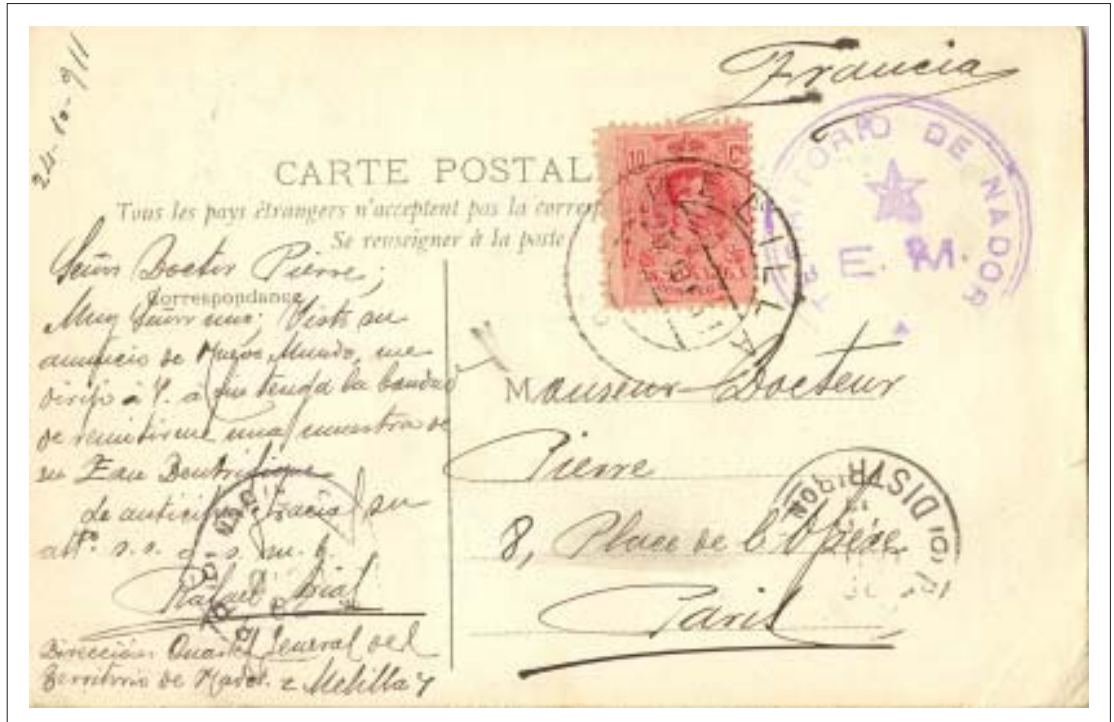 24-10-911
Francia
CARTE POSTALE
Tous les pays étrangers n'acceptent pas la corresp
Se renseigner à la poste
Correspondance
Señor Doctor Pierre;
Muy Señor mio; Visto su
anuncio de Nuevo Mundo, me
dirijo à V. a fin tenga la bondad
de remitirme una muestra de
su Eau Dentrifique
de anticip gracias su
att.º s. s. q. s. m. b.
Rafael
Dirección Quartel General del
Territorio de Nador. = Melilla
10 Cs
MELILLA
TERRITORIO DE NADOR
E. M.
Monseur Docteur
Pierre
8, Place de l'Opéra
Paris
DISTRI